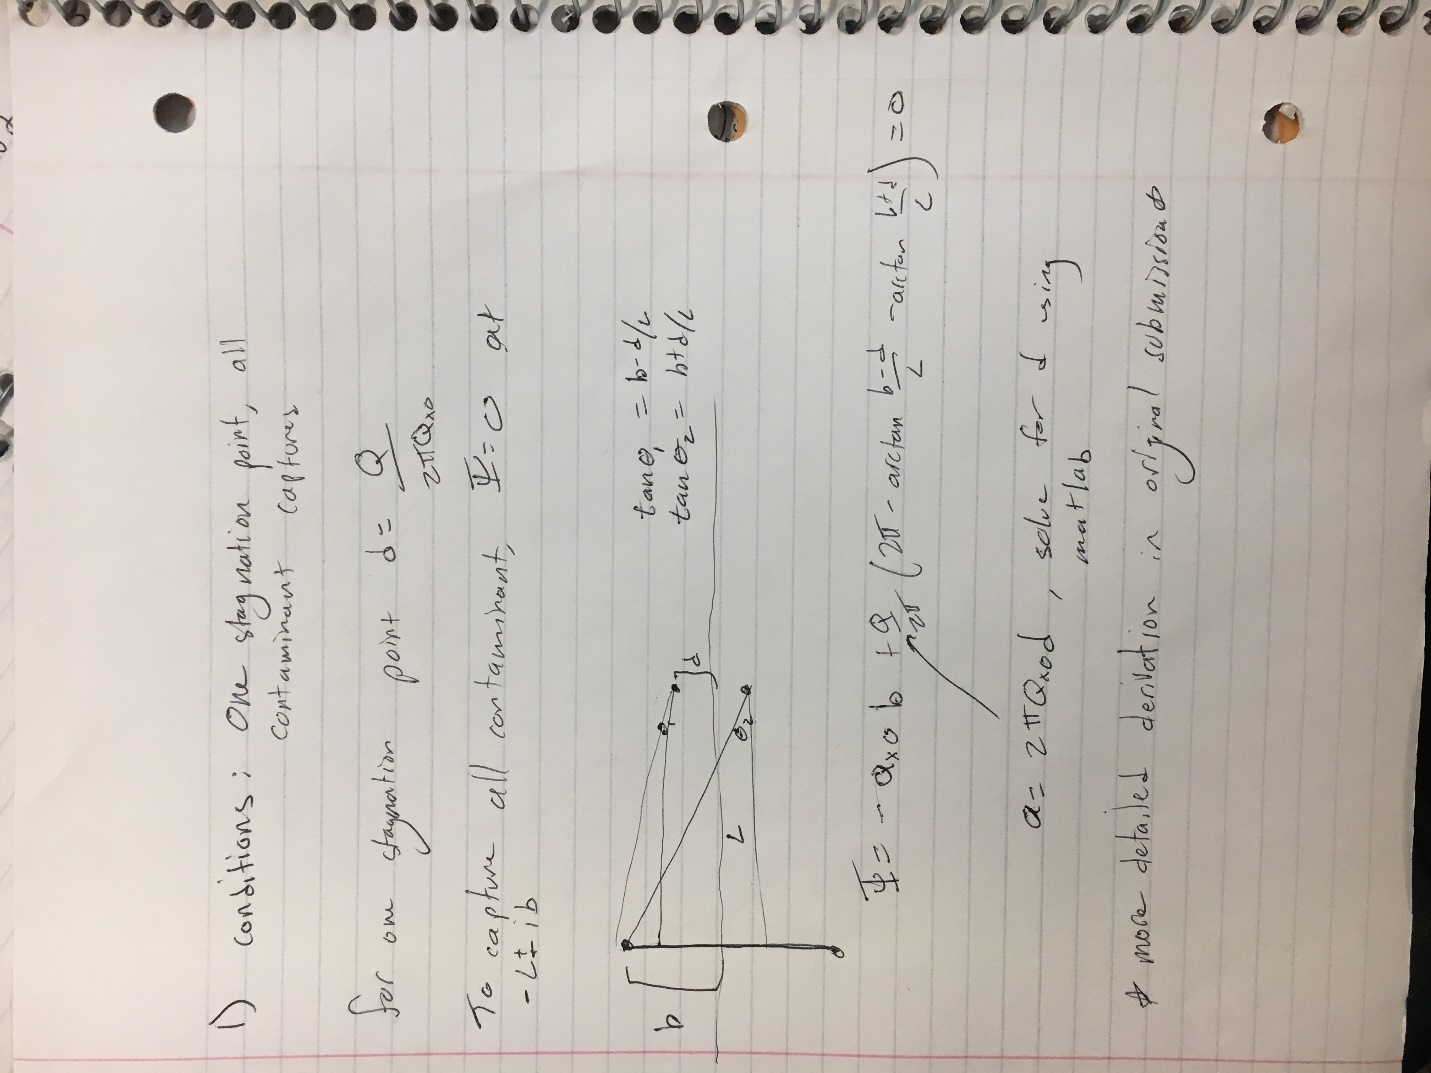 1) conditions: One stagnation point, all
contaminant captures
for one stagnation point d = Q / 2πQxo
To capture all contaminant, Ψ = 0 at
-L ± ib
tanθ1 = b-d/L
tanθ2 = b+d/L
b
θ1
d
θ2
L
Ψ = -Qxo b + Q/2π (2π - arctan b-d/L - arctan b+d/L) = 0
Q = 2πQxod, solve for d using
matlab
* more detailed derivation in original submission *